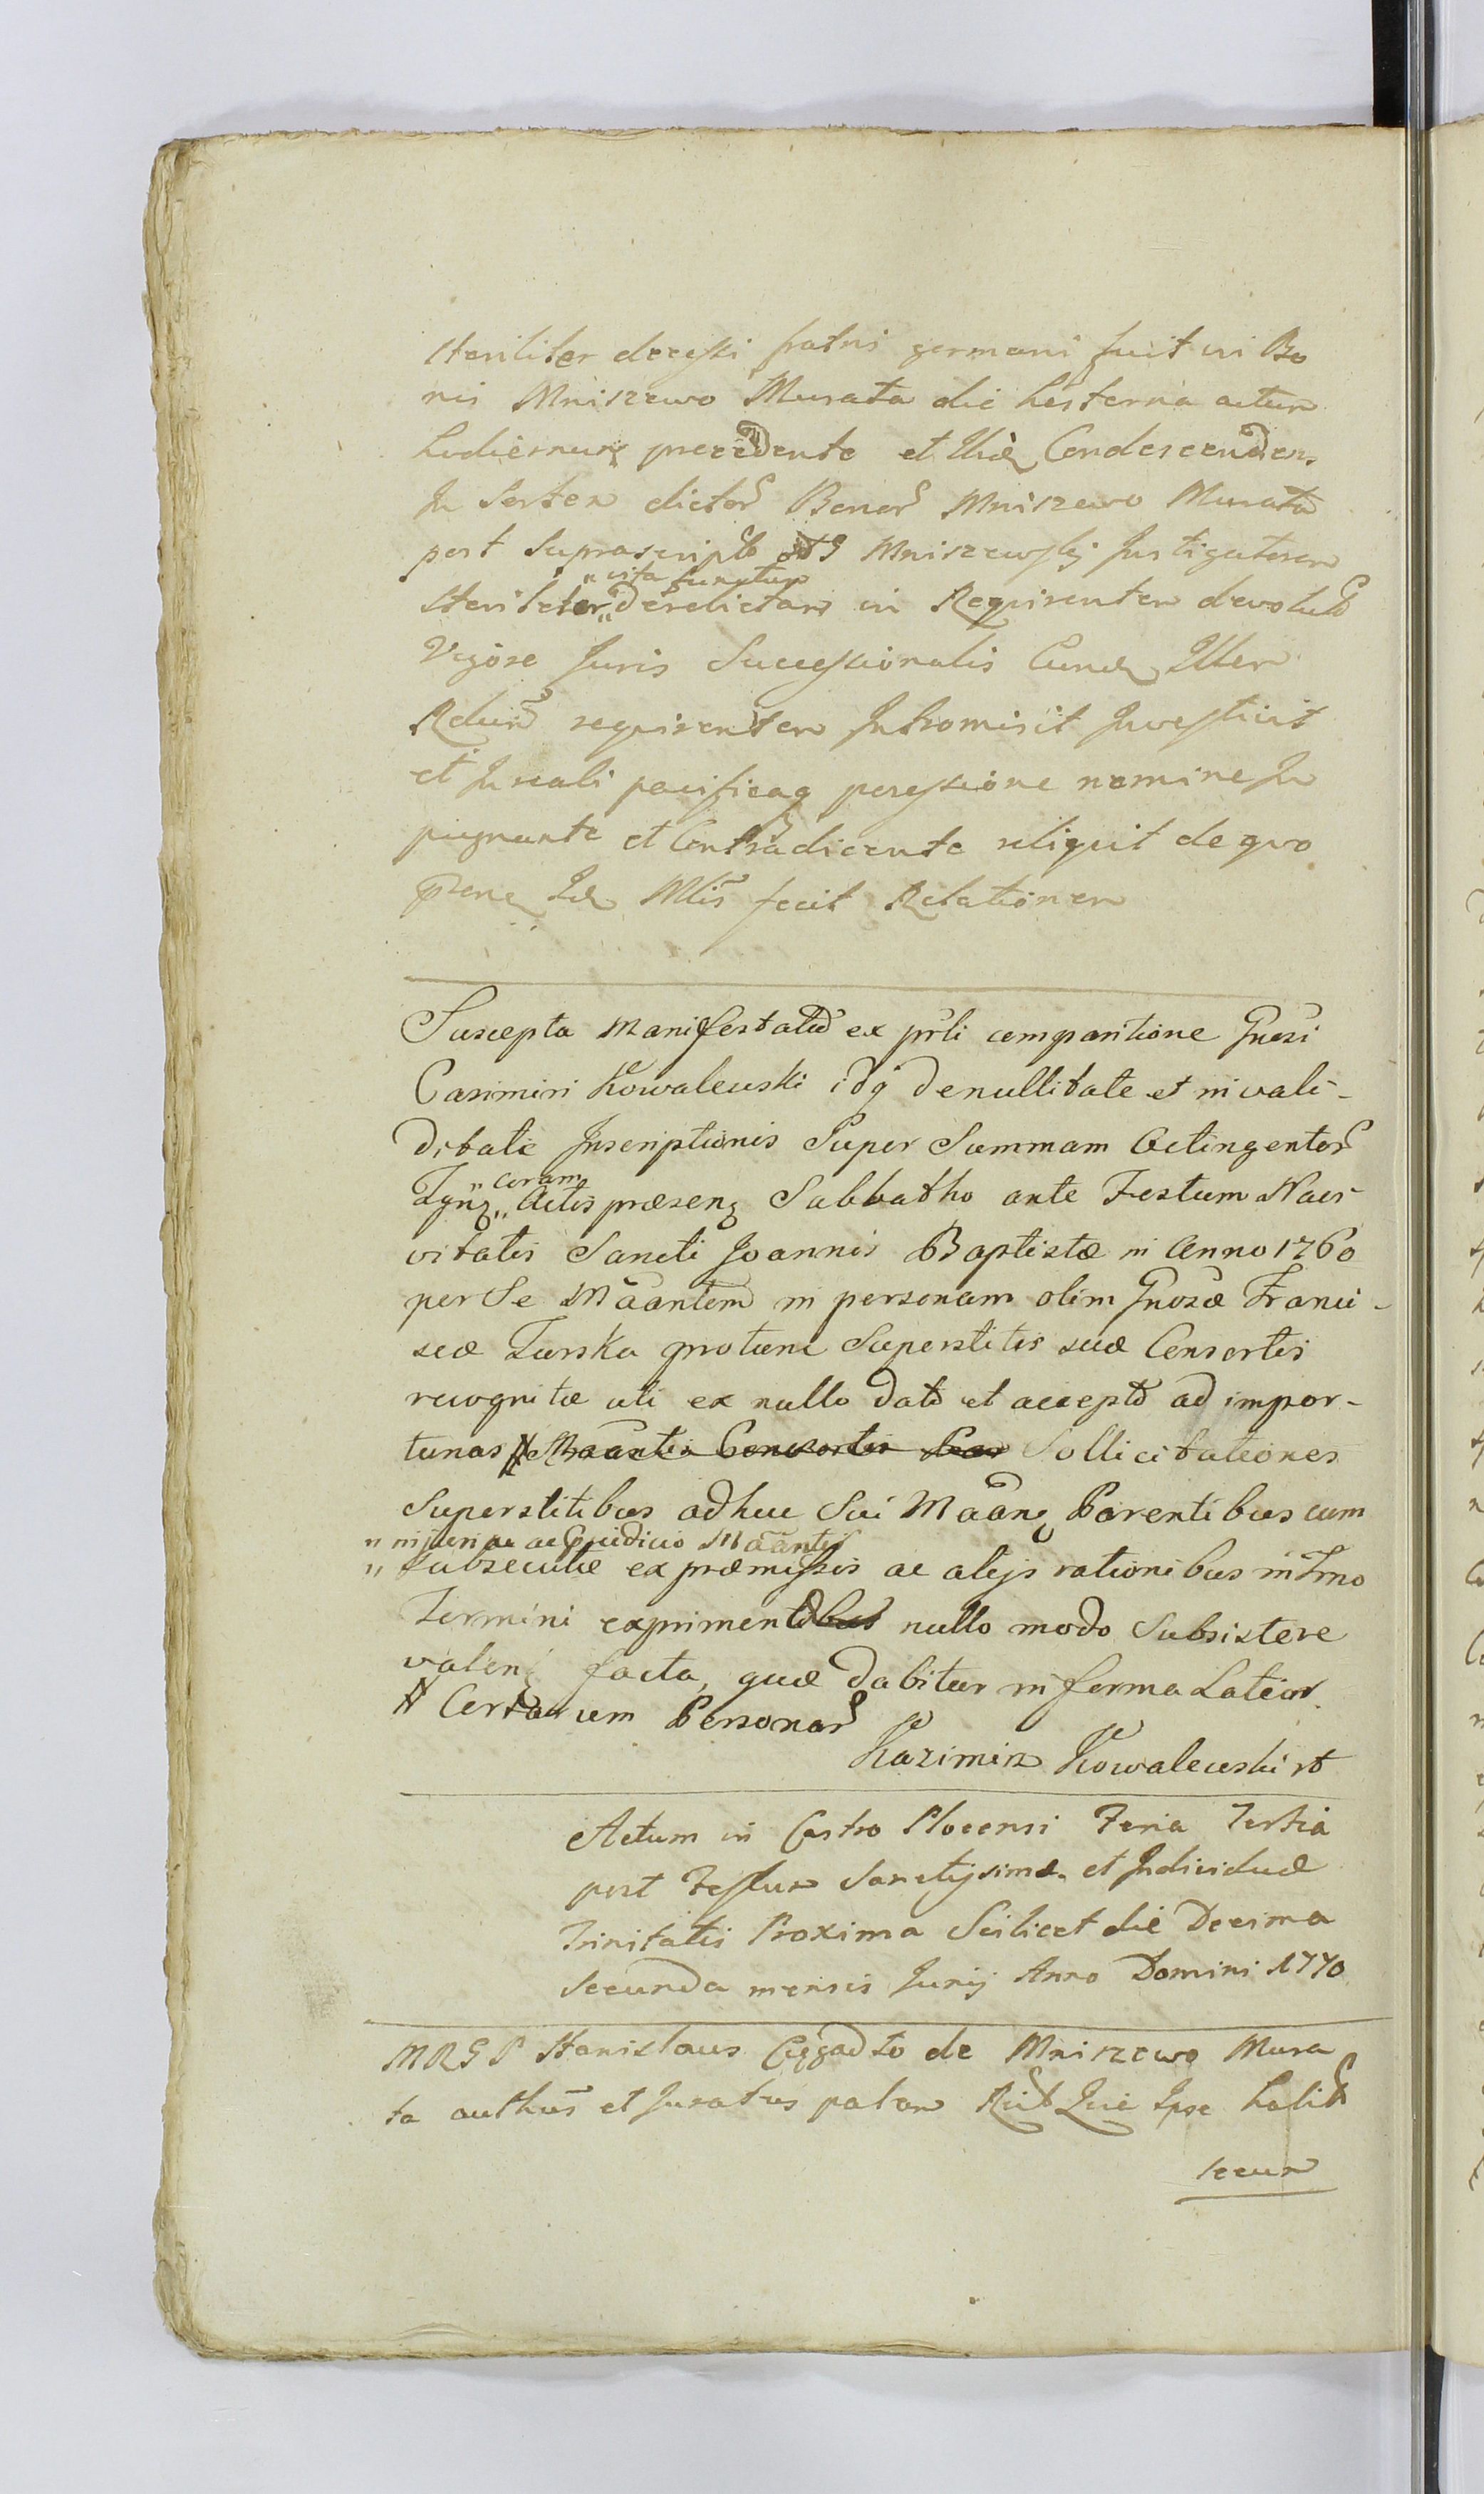 steriliter decessi fratris germani fuit in Bo
nis Mniszewo Murata die hesterna actum
hodiernum precedente et Ibiq Condescenden
In Sortem dictor Bonor Mniszewo Murata
post Suprascripto G Mniszewski Instigatorem
Sterileter „vita functum„ derelictam in Requirentem devolut
Vigore Juris Successionalis Eund Iller
Rdum requirentem Intromisit Investivit
et In reali pacificaq possessione nemine Im
pugnante et Contradicente reliquit de quo
Idq Mlis fecit Relationem
Suscepta Manifestatio ex prli comparitione Gnosi
Casimiri Kowalewski idq de nullitate et invali-
ditate Inscriptionis Super Summam Octingentor
„coram„ Actis præsenz Sabbatho ante Festum Nati-
vitatis Sancti Joannis Baptistæ in Anno 1760
per Se Mãantem in personam olim Gnosæ Franci-
scæ Turska protunc Superstitis suæ Consortis
recognitæ uti ex nullo dato et accepto ad impor-
tunas # Mãantis Consortis Suæ Sollicitationes
Superstitibus adhuc Sui Mãanz Parentibus cum
„injuria ac Præjudicio Mãantis
„ subsecutæ ex præmissis ac alijs rationibus in Trno
Termini expriment nullo modo Subsistere
valenz facta, quæ dabitur in forma Latior
# Certarum Personar
Kazimierz Kowalewski
Actum in Castro Plocensi Feria Tertia
post Festum Sanctissimæ et Individuæ
Trinitatis Proxima Scilicet die Decima
Secunda mensis Junij Anno Domini 1770
MRGP Stanislaus de Mniszewo Mura
ta authus et Juratus palam Quia Ipse habit
secum